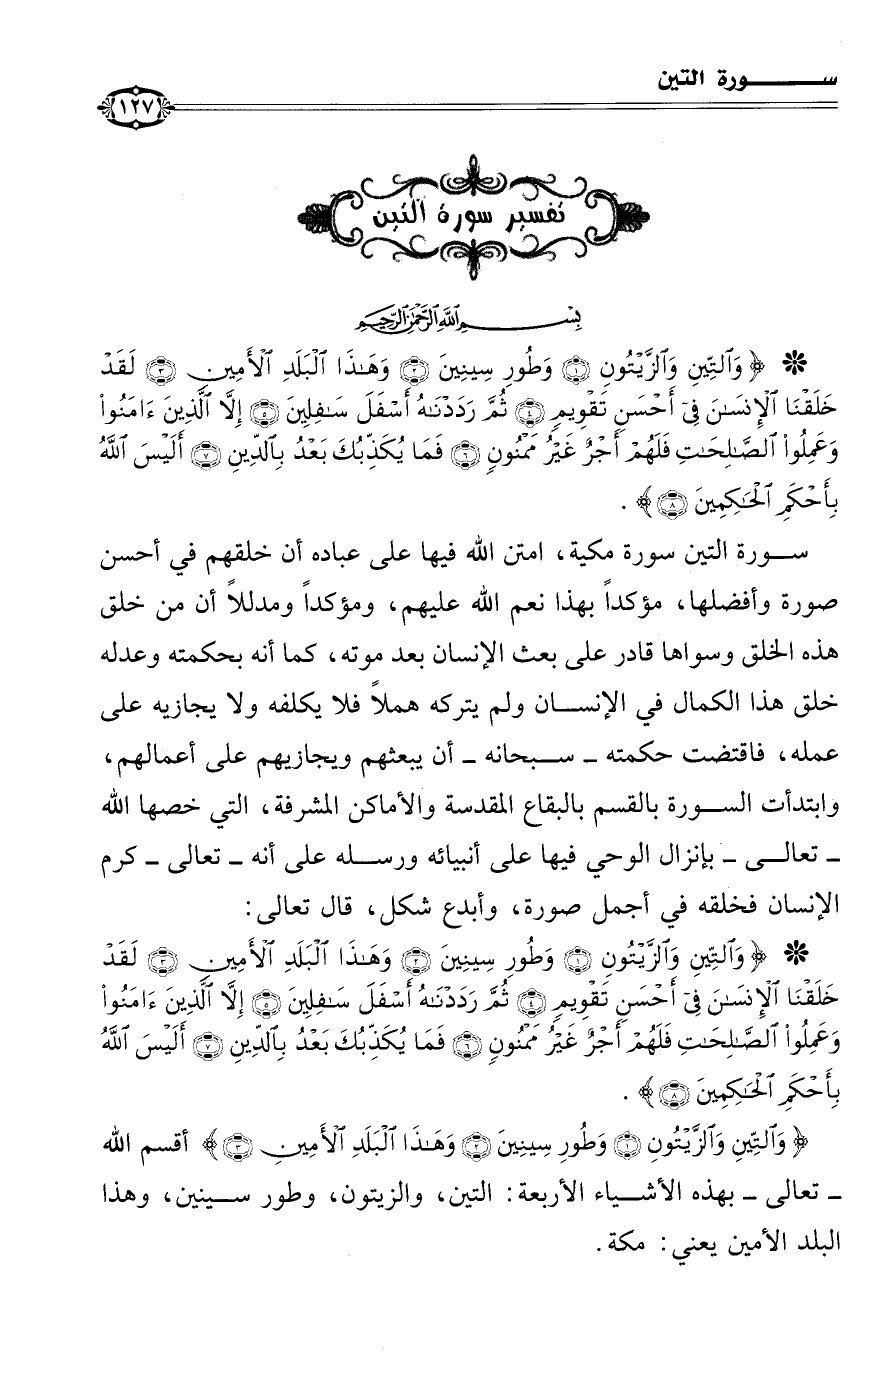 سورة التين
١٢٧
تفسير سورة التين
بِسْمِ اللَّهِ الرَّحْمَٰنِ الرَّحِيمِ
❊ ﴿ وَٱلتِّينِ وَٱلزَّيْتُونِ ۝١ وَطُورِ سِينِينَ ۝٢ وَهَـٰذَا ٱلْبَلَدِ ٱلْأَمِينِ ۝٣ لَقَدْ
خَلَقْنَا ٱلْإِنسَـٰنَ فِىٓ أَحْسَنِ تَقْوِيمٍ ۝٤ ثُمَّ رَدَدْنَـٰهُ أَسْفَلَ سَـٰفِلِينَ ۝٥ إِلَّا ٱلَّذِينَ ءَامَنُوا۟
وَعَمِلُوا۟ ٱلصَّـٰلِحَـٰتِ فَلَهُمْ أَجْرٌ غَيْرُ مَمْنُونٍ ۝٦ فَمَا يُكَذِّبُكَ بَعْدُ بِٱلدِّينِ ۝٧ أَلَيْسَ ٱللَّهُ
بِأَحْكَمِ ٱلْحَـٰكِمِينَ ۝٨ ﴾ .
سورة التين سورة مكية، امتن الله فيها على عباده أن خلقهم في أحسن
صورة وأفضلها، مؤكداً بهذا نعم الله عليهم، ومؤكداً ومدللاً أن من خلق
هذه الخلق وسواها قادر على بعث الإنسان بعد موته، كما أنه بحكمته وعدله
خلق هذا الكمال في الإنسان ولم يتركه هملاً فلا يكلفه ولا يجازيه على
عمله، فاقتضت حكمته ـ سبحانه ـ أن يبعثهم ويجازيهم على أعمالهم،
وابتدأت السورة بالقسم بالبقاع المقدسة والأماكن المشرفة، التي خصها الله
ـ تعالى ـ بإنزال الوحي فيها على أنبيائه ورسله على أنه ـ تعالى ـ كرم
الإنسان فخلقه في أجمل صورة، وأبدع شكل، قال تعالى:
❊ ﴿ وَٱلتِّينِ وَٱلزَّيْتُونِ ۝١ وَطُورِ سِينِينَ ۝٢ وَهَـٰذَا ٱلْبَلَدِ ٱلْأَمِينِ ۝٣ لَقَدْ
خَلَقْنَا ٱلْإِنسَـٰنَ فِىٓ أَحْسَنِ تَقْوِيمٍ ۝٤ ثُمَّ رَدَدْنَـٰهُ أَسْفَلَ سَـٰفِلِينَ ۝٥ إِلَّا ٱلَّذِينَ ءَامَنُوا۟
وَعَمِلُوا۟ ٱلصَّـٰلِحَـٰتِ فَلَهُمْ أَجْرٌ غَيْرُ مَمْنُونٍ ۝٦ فَمَا يُكَذِّبُكَ بَعْدُ بِٱلدِّينِ ۝٧ أَلَيْسَ ٱللَّهُ
بِأَحْكَمِ ٱلْحَـٰكِمِينَ ۝٨ ﴾ .
﴿ وَٱلتِّينِ وَٱلزَّيْتُونِ ۝١ وَطُورِ سِينِينَ ۝٢ وَهَـٰذَا ٱلْبَلَدِ ٱلْأَمِينِ ۝٣ ﴾ أقسم الله
ـ تعالى ـ بهذه الأشياء الأربعة: التين، والزيتون، وطور سينين، وهذا
البلد الأمين يعني: مكة.